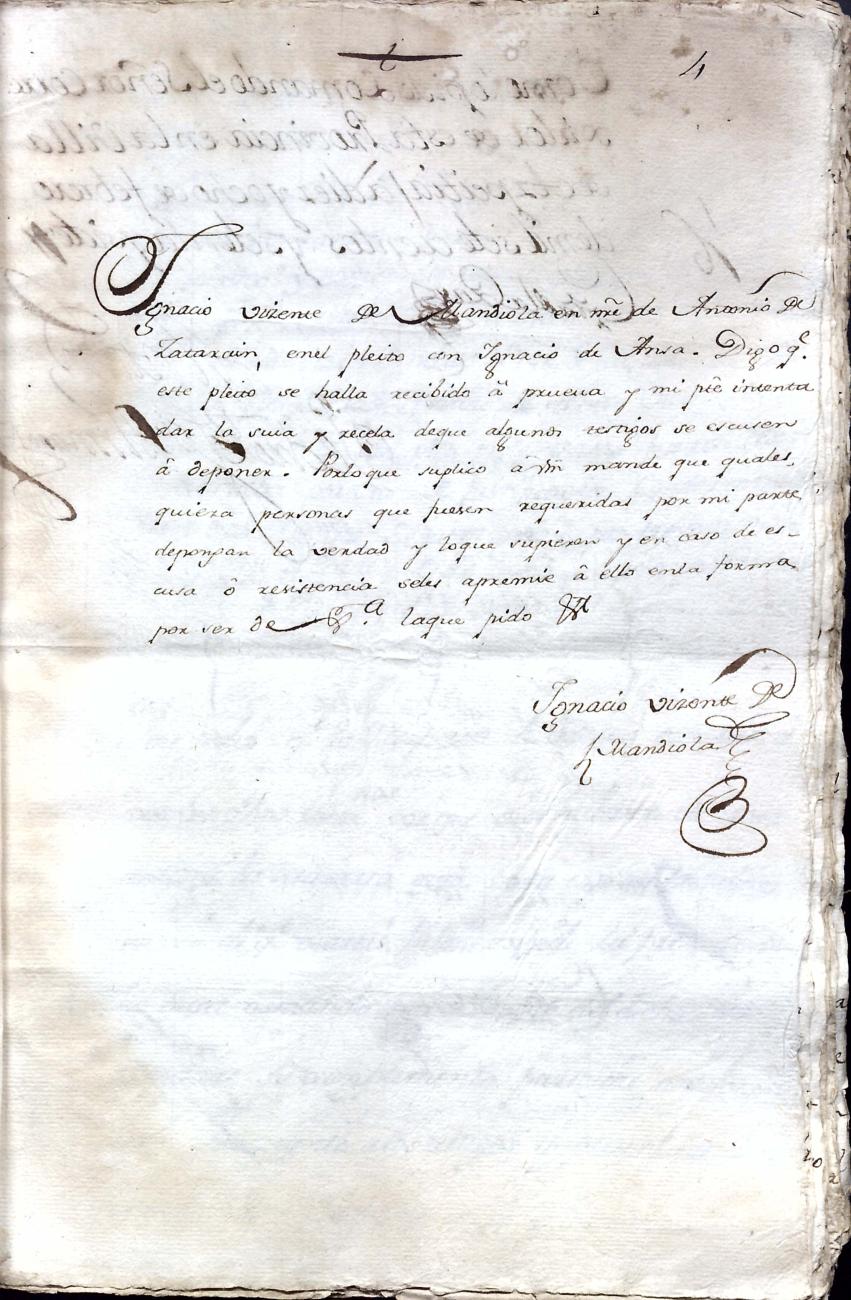 4
Ignacio vizente de Mandiola en nre de Antonio de
Zatarain, enel pleito con Ignacio de Ansa. Digo q.
este pleito se halla recibido â prueva y mi pte intenta
dar la suia y recela deque algunos testigos se escusen
â deponer. Porloque suplico â Vm mande que quales,,
quiera personas que fuesen requeridas por mi parte
depongan la verdad y loque supieren y en caso de es-
cusa ô resistencia seles apremie â ello enla forma
por ser de J.a laque pido
Ignacio vizente de
Mandiola